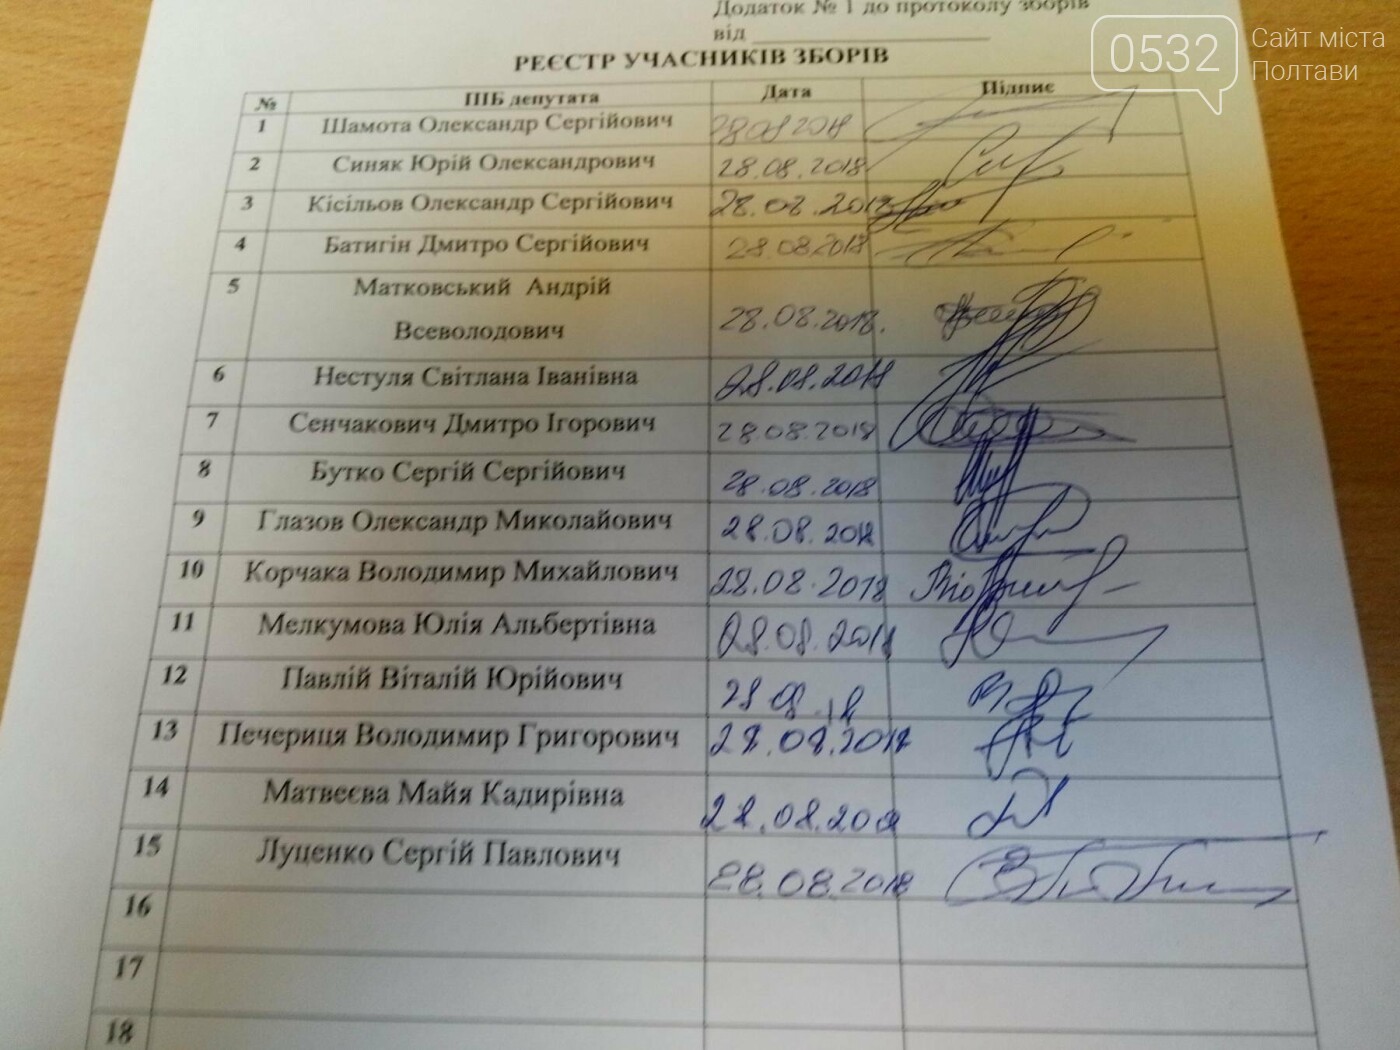 Додаток № 1 до протоколу зборів
від
0532
Сайт міста
Полтави
РЕЄСТР УЧАСНИКІВ ЗБОРІВ
№ ПІБ депутата Дата Підпис
1 Шамота Олександр Сергійович 28 08 2018
2 Синяк Юрій Олександрович 28.08.2018
3 Кісільов Олександр Сергійович 28.08.2018
4 Батигін Дмитро Сергійович 28.08.2018
5 Матковський Андрій
Всеволодович 28.08.2018.
6 Нестуля Світлана Іванівна 28.08.2018
7 Сенчакович Дмитро Ігорович 28.08.2018
8 Бутко Сергій Сергійович 28.08.2018
9 Глазов Олександр Миколайович 28.08.2018
10 Корчака Володимир Михайлович 28.08.2018
11 Мелкумова Юлія Альбертівна 28.08.2018
12 Павлій Віталій Юрійович
13 Печериця Володимир Григорович 28.08.2018
14 Матвеєва Майя Кадирівна
15 Луценко Сергій Павлович 28.08.2018
16
17
18